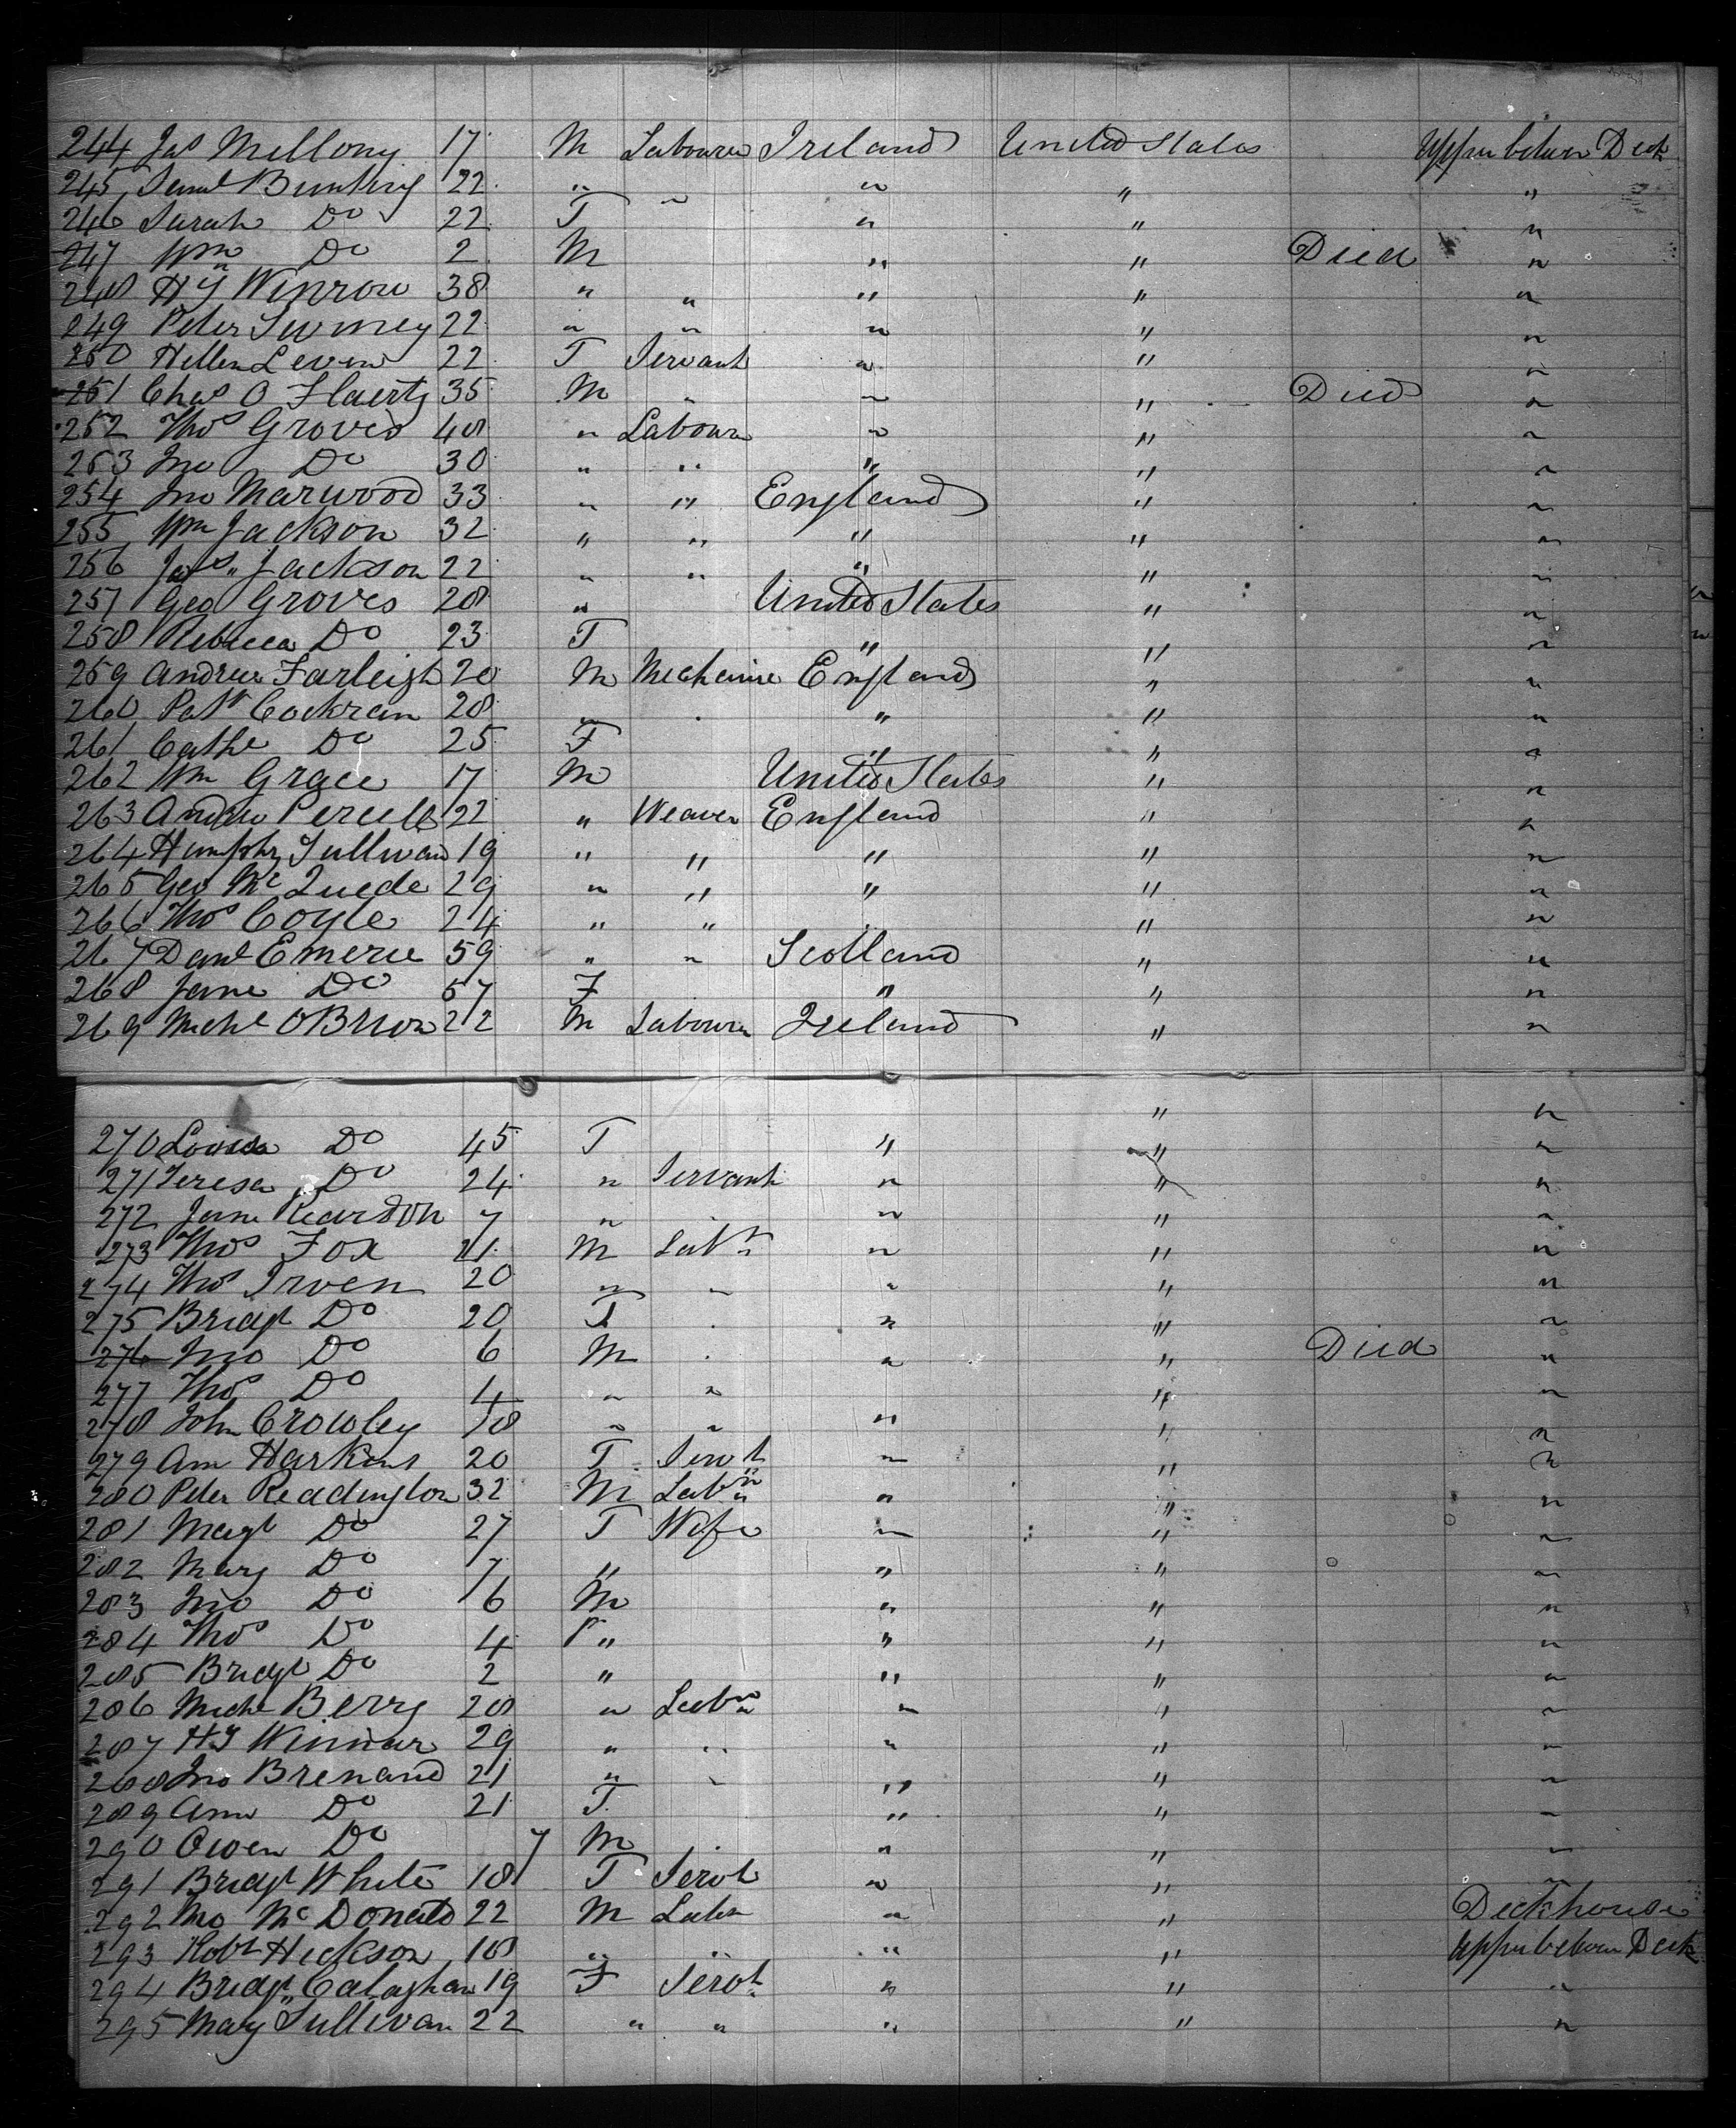 244 Jas Mellony 17 M Labourer Ireland United States Upper between Deck
245 Saml Bunting 22 " " " " "
246 Sarah Do 22 F " " "
247 Wm Do 2 M " " Died "
248 Hy Winrow 38 " " " " "
249 Peter 22 " " " " "
250 Hellen Leven 22 F Servant " " "
251 Chas O Flaerty 35 M " " " Died "
252 Thos Groves 48 " Labourer " " "
253 Jno Do 30 " " " " "
254 Jno Marwood 33 " " England " "
255 Wm Jackson 32 " " " " "
256 Jas Jackson 22 " " " " "
257 Geo Groves 28 " United States " "
258 Rebecca Do 23 F " " "
259 Andrew Farleigh 20 M Mechanic England " "
260 Patk Cockran 28 " " " "
261 Cathe Do 25 F " " "
262 Wm Grace 17 M United States " "
263 Andrew Percells 22 " Weaver England " "
264 Humphry Sullivan 19 " " " " "
265 Geo Mc Quede 29 " " " " "
266 Thos Coyle 24 " " " " "
267 Danl Emerie 59 " " Scotland " "
268 Jane Do 57 F " " "
269 Michl OBrien 22 M Labourer Ireland " "
" "
270 Louisa Do 45 F " " "
271 Teresa Do 24 " Servant " " "
272 Jane Reardon 7 " " " "
273 Thos Fox 21 M Labr " " "
274 Thos Irven 20 " " " " "
275 Bridgt Do 20 F " " "
276 Jno Do 6 M " " Died "
277 Thos Do 4 " " " "
278 John Crowley 18 " " " " "
279 Ann Harkins 20 F Servt " " "
280 Peter Readington 32 M Labr " " "
281 Magt Do 27 F Wife " " "
282 Mary Do 7 " " " "
283 Jno Do 6 M " " "
284 Thos Do 4 " " " "
285 Bridgt Do 2 " " " "
286 Michl Berry 28 " Labr " " "
287 Hy Winnar 29 " " " " "
288 Jno Brenand 21 " " " " "
289 Ann Do 21 F " " "
290 Owen Do 7 M " " "
291 Bridgt White 18 F Servt " " "
292 Jno Mc Donald 22 M Labr " " Deckhouse
293 Robt Hickson 18 " " " " Upper between Deck
294 Bridgt Calaghan 19 F Servt " " "
295 Mary Sullivan 22 " " " " "